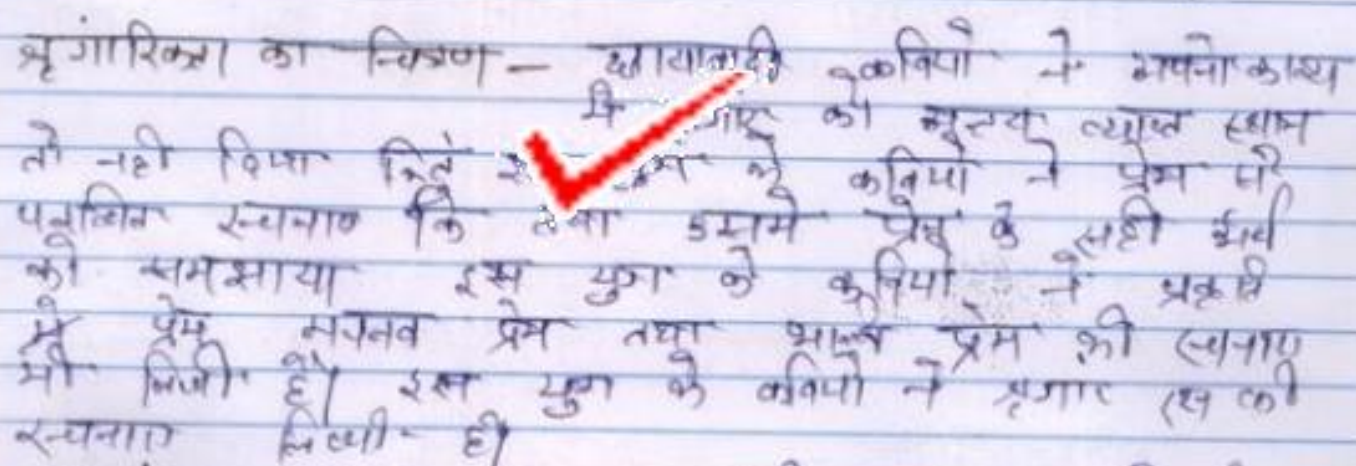 श्रृगांरिकता का चित्रण – छायावादी कवियों ने अपने काव्य
में को स्थान
तो नही दिया के कवियों ने प्रेम से
रचनाए कि तथा इसमे प्रेम के सही अर्थ
को समझाया इस युग के कवियों ने प्रकृति
से प्रेम मानव प्रेम तथा प्रेम की रचनाए
भी लिखी है। इस युग के कवियो ने श्रृगार रस की
रचनाए लिखी है।